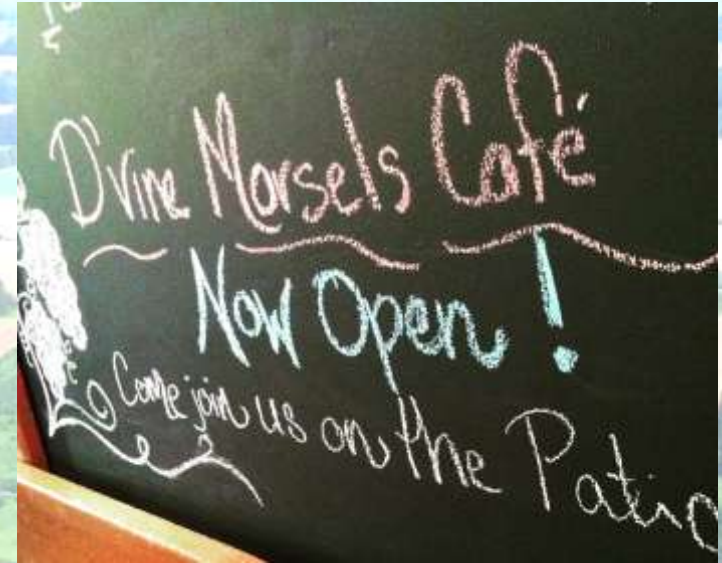 D'vine Morsels Café
Now Open!
Come join us on the Patio